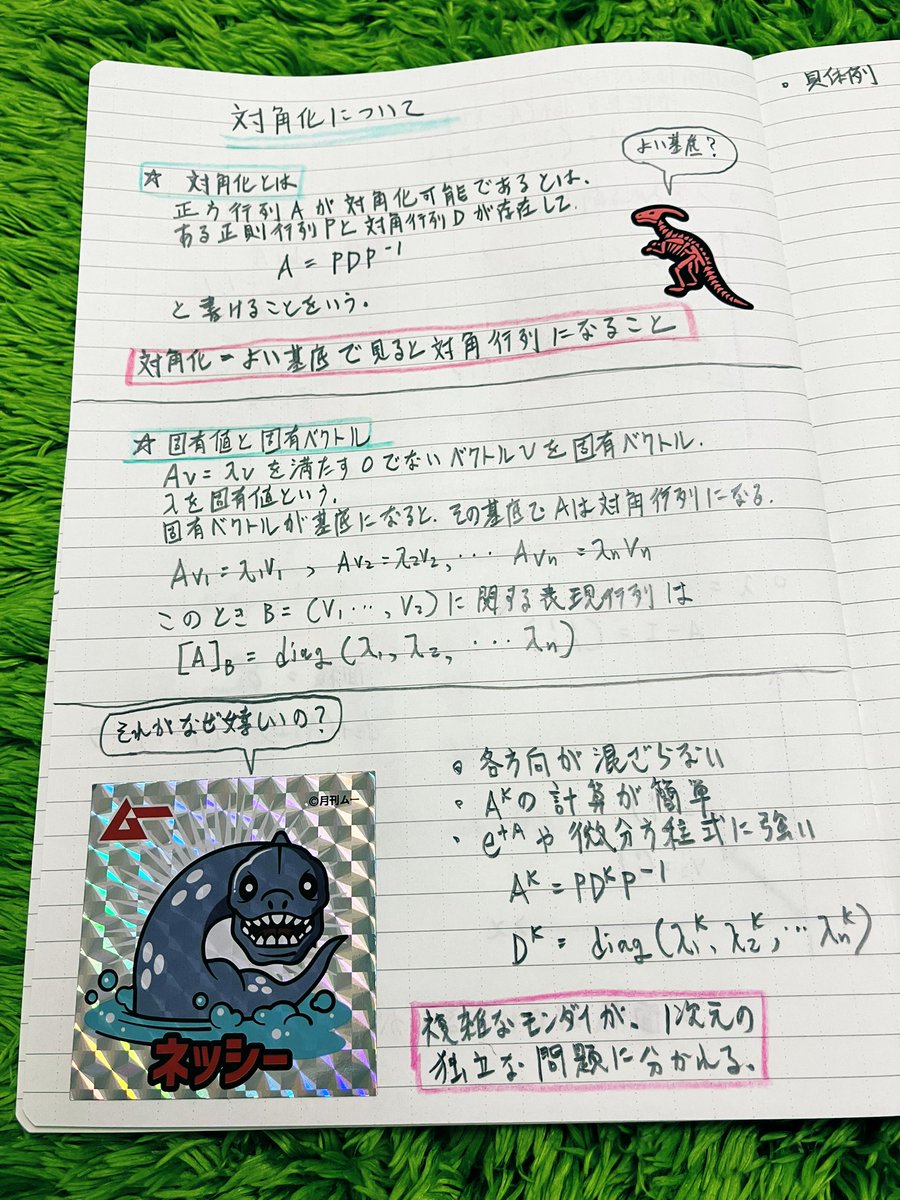 対角化について
☆ 対角化とは
正方行列 A が対角化可能であるとは、
ある正則行列Pと対角行列Dが存在して
A = PDP⁻¹
と書けることをいう。
よい基底?
対角化 = よい基底で見ると対角行列になること
☆ 固有値と固有ベクトル
Av = λv を満たす 0 でない ベクトル v を 固有ベクトル.
λを固有値という.
固有ベクトルが基底になると、その基底でAは対角行列になる.
Av₁ = λ₁v₁ , Av₂ = λ₂v₂, ⋯ Avₙ = λₙvₙ
このとき B = (v₁ ⋯, v₂) に関する表現行列は
[A]_B = diag (λ₁, λ₂, ⋯ λₙ)
それがなぜ嬉しいの?
ムー
©月刊ムー
ネッシー
• 各方向が混ざらない
• Aᵏの計算が簡単
• eᵗᴬや微分方程式に強い
Aᵏ = PDᵏP⁻¹
Dᵏ = diag (λ₁ᵏ, λ₂ᵏ, ⋯ λₙᵏ)
複雑なモンダイが、1次元の
独立な問題に分かれる。
• 具体例